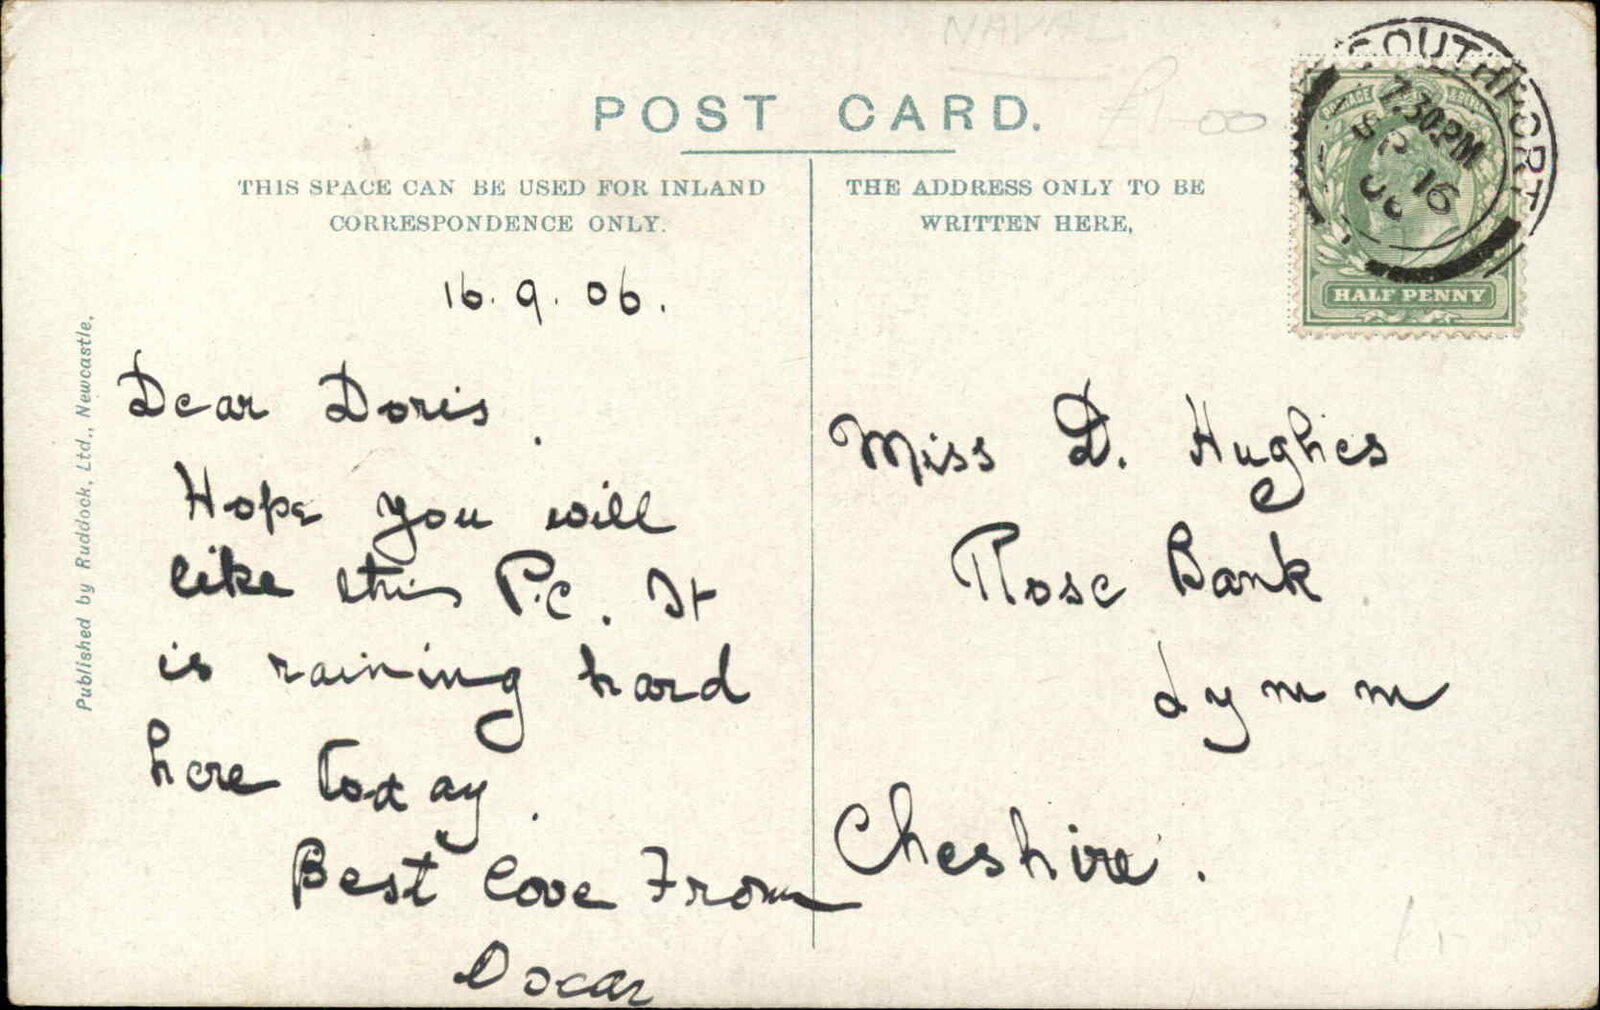 NAVAL
£1-00
POST CARD.
THIS SPACE CAN BE USED FOR INLAND
CORRESPONDENCE ONLY.
THE ADDRESS ONLY TO BE
WRITTEN HERE,
SOUTHPORT
7.30 PM
SP 16
06
HALF PENNY
Published by Ruddock, Ltd., Newcastle.
16.9.06.
Dear Doris.
Hope you will
like this P.C. It
is raining hard
here today.
Best love From
Oscar
Miss D. Hughes
Rose Bank
Lymm
Cheshire.